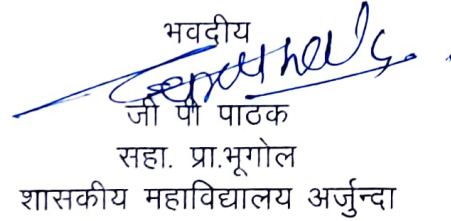 भवदीय
जी पी पाठक
सहा. प्रा.भूगोल
शासकीय महाविद्यालय अर्जुन्दा